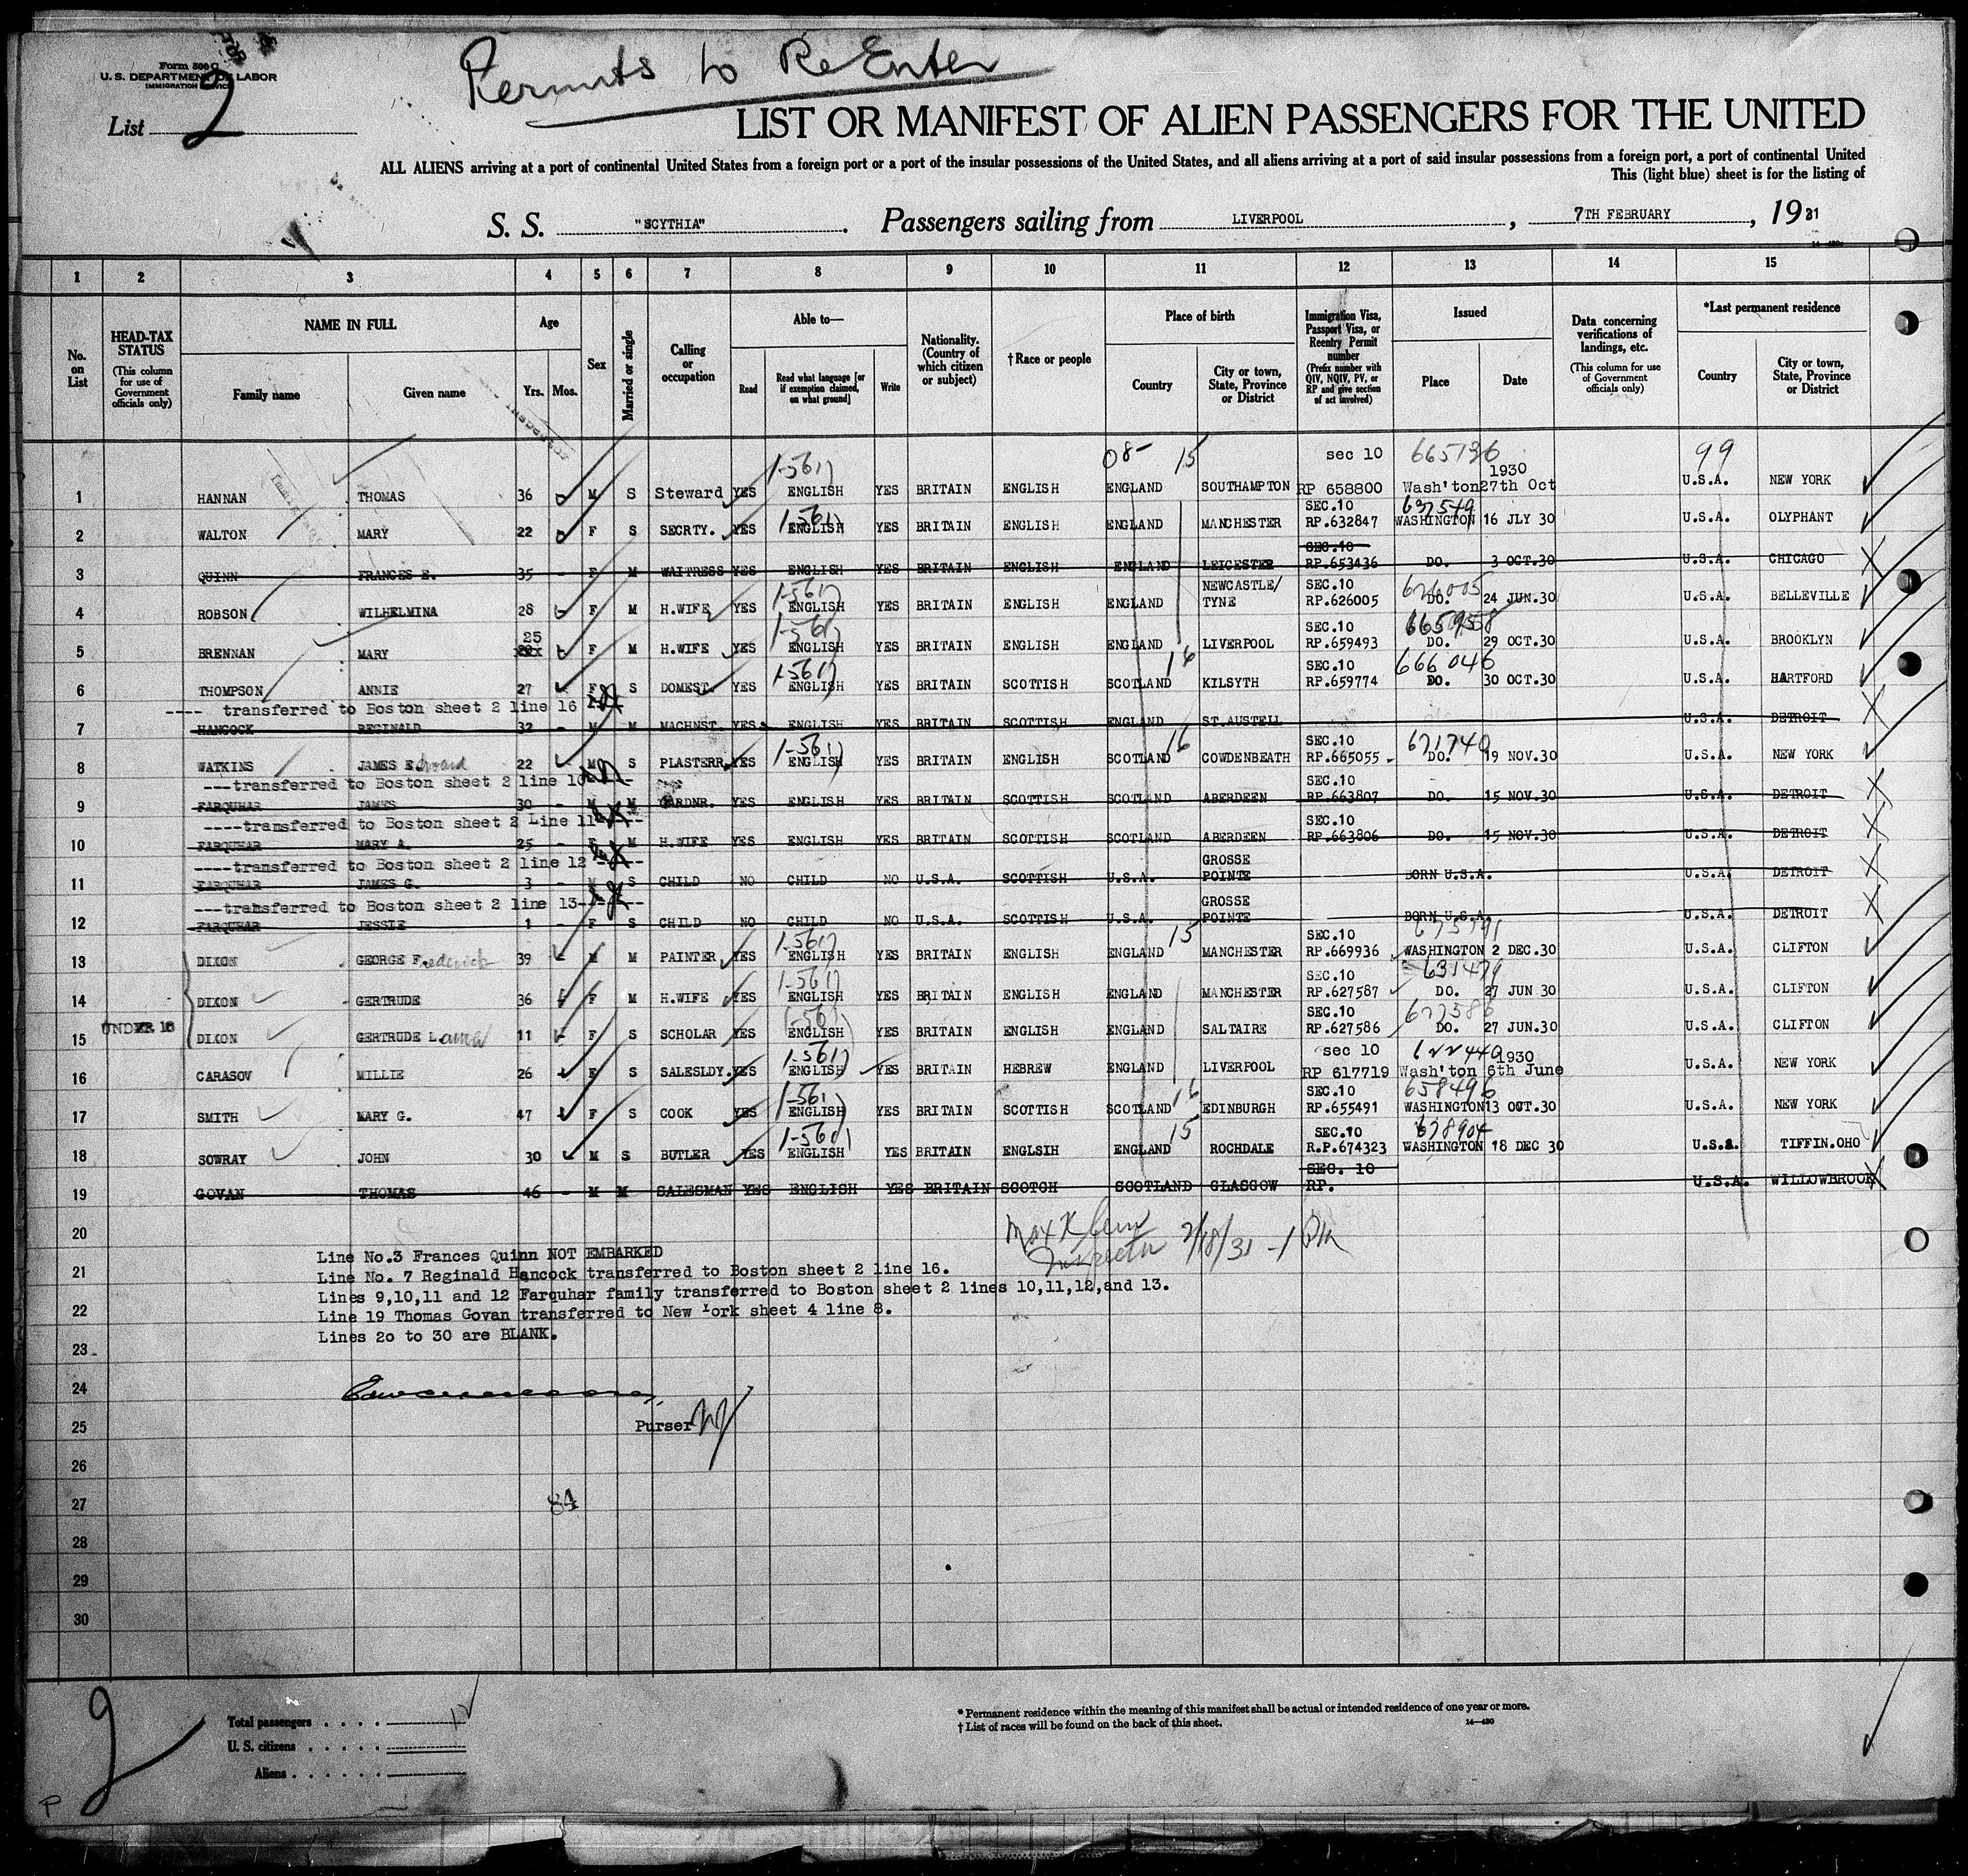 Permits to ReEnter
Form 500 C
U. S. DEPARTMENT OF LABOR
IMMIGRATION SERVICE
List 2
LIST OR MANIFEST OF ALIEN PASSENGERS FOR THE UNITED
ALL ALIENS arriving at a port of continental United States from a foreign port or a port of the insular possessions of the United States, and all aliens arriving at a port of said insular possessions from a foreign port, a port of continental United
This (light blue) sheet is for the listing of
S. S. "SCYTHIA". Passengers sailing from LIVERPOOL, 7TH FEBRUARY, 1931
1 2 3 4 5 6 7 8 9 10 11 12 13 14 15
No. on List
HEAD-TAX STATUS (This column for use of Government officials only)
NAME IN FULL Family name Given name
Age Yrs. Mos.
Sex
Married or single
Calling or occupation
Able to— Read Read what language [or if exemption claimed, on what ground] Write
Nationality. (Country of which citizen or subject)
†Race or people
Place of birth Country City or town, State, Province or District
Immigration Visa, Passport Visa, or Reentry Permit number (Prefix number with QIV, NQIV, PV, or RP and give section of act involved)
Issued Place Date
Data concerning verifications of landings, etc. (This column for use of Government officials only)
*Last permanent residence Country City or town, State, Province or District
1-561) 08- 15 sec 10 665136 1930 99
1 HANNAN THOMAS 36 M S Steward YES ENGLISH YES BRITAIN ENGLISH ENGLAND SOUTHAMPTON RP 658800 Wash'ton 27th Oct U.S.A. NEW YORK
1-561) SEC.10 632549
2 WALTON MARY 22 F S SECRTY. YES ENGLISH YES BRITAIN ENGLISH ENGLAND MANCHESTER RP.632847 WASHINGTON 16 JLY 30 U.S.A. OLYPHANT
SEC.10
3 QUINN FRANCES E. 35 - F M WAITRESS YES ENGLISH YES BRITAIN ENGLISH ENGLAND LEICESTER RP.653436 DO. 3 OCT.30 U.S.A. CHICAGO
1-561) NEWCASTLE/ SEC.10 626005
4 ROBSON WILHELMINA 28 F M H.WIFE YES ENGLISH YES BRITAIN ENGLISH ENGLAND TYNE RP.626005 DO. 24 JUN.30 U.S.A. BELLEVILLE
25 1-561) SEC.10 665958
5 BRENNAN MARY F M H.WIFE YES ENGLISH YES BRITAIN ENGLISH ENGLAND LIVERPOOL RP.659493 DO. 29 OCT.30 U.S.A. BROOKLYN
1-561) 16 SEC.10 666046
6 THOMPSON ANNIE 27 F S DOMEST. YES ENGLISH YES BRITAIN SCOTTISH SCOTLAND KILSYTH RP.659774 DO. 30 OCT.30 U.S.A. HARTFORD
---- transferred to Boston sheet 2 line 16
7 HANCOCK REGINALD 32 - M M MACHNST. YES ENGLISH YES BRITAIN SCOTTISH ENGLAND ST.AUSTELL U.S.A. DETROIT
1-561) 16 SEC.10 671740
8 WATKINS JAMES Edward 22 M S PLASTERR. YES ENGLISH YES BRITAIN ENGLISH SCOTLAND COWDENBEATH RP.665055 DO. 19 NOV.30 U.S.A. NEW YORK
---transferred to Boston sheet 2 line 10 SEC.10
9 FARQUHAR JAMES 30 - M M GARDNR. YES ENGLISH YES BRITAIN SCOTTISH SCOTLAND ABERDEEN RP.663807 DO. 15 NOV.30 U.S.A. DETROIT
----transferred to Boston sheet 2 Line 11 SEC.10
10 FARQUHAR MARY A. 25 - F M H.WIFE YES ENGLISH YES BRITAIN SCOTTISH SCOTLAND ABERDEEN RP.663806 DO. 15 NOV.30 U.S.A. DETROIT
-----transferred to Boston sheet 2 line 12 GROSSE
11 FARQUHAR JAMES G. 3 - M S CHILD NO CHILD NO U.S.A. SCOTTISH U.S.A. POINTE BORN U.S.A. U.S.A. DETROIT
---transferred to Boston sheet 2 line 13 GROSSE
12 FARQUHAR JESSIE 1 - F S CHILD NO CHILD NO U.S.A. SCOTTISH U.S.A. POINTE BORN U.S.A. U.S.A. DETROIT
1-561) 15 SEC.10
13 DIXON GEORGE Frederick 39 M M PAINTER YES ENGLISH YES BRITAIN ENGLISH ENGLAND MANCHESTER RP.669936 WASHINGTON 2 DEC.30 U.S.A. CLIFTON
1-561) SEC.10 631479
14 DIXON GERTRUDE 36 F M H.WIFE YES ENGLISH YES BRITAIN ENGLISH ENGLAND MANCHESTER RP.627587 DO. 27 JUN 30 U.S.A. CLIFTON
UNDER 16 1-561 SEC.10
15 DIXON GERTRUDE L 11 F S SCHOLAR YES ENGLISH YES BRITAIN ENGLISH ENGLAND SALTAIRE RP.627586 DO. 27 JUN.30 U.S.A. CLIFTON
1-561) sec 10 622440 1930
16 CARASOV MILLIE 26 F S SALESLDY. YES ENGLISH YES BRITAIN HEBREW ENGLAND LIVERPOOL RP 617719 Wash'ton 6th June U.S.A. NEW YORK
1-561) 16 SEC.10 658496
17 SMITH MARY G. 47 F S COOK YES ENGLISH YES BRITAIN SCOTTISH SCOTLAND EDINBURGH RP.655491 WASHINGTON 13 OCT.30 U.S.A. NEW YORK
1-560) 15 SEC.10 678904
18 SOWRAY JOHN 30 M S BUTLER YES ENGLISH YES BRITAIN ENGLSIH ENGLAND ROCHDALE R.P.674323 WASHINGTON 18 DEC 30 U.S.A. TIFFIN.OHO
SEC. 10
19 GOVAN THOMAS 46 - M M SALESMAN YES ENGLISH YES BRITAIN SCOTCH SCOTLAND GLASGOW RP. U.S.A. WILLOWBROOK
20
Max Klein
Inspector 2/18/31
Line No.3 Frances Quinn NOT EMBARKED
21 Line No. 7 Reginald Hancock transferred to Boston sheet 2 line 16.
Lines 9,10,11 and 12 Farquhar family transferred to Boston sheet 2 lines 10,11,12,and 13.
22 Line 19 Thomas Govan transferred to New York sheet 4 line 8.
Lines 2o to 30 are BLANK.
23
24
25 Purser
26
27 84
28
29
30
2
Total passengers . . . . 12
U. S. citizens . . . . .
Aliens . . . . . .
* Permanent residence within the meaning of this manifest shall be actual or intended residence of one year or more.
† List of races will be found on the back of this sheet. 14—430
P